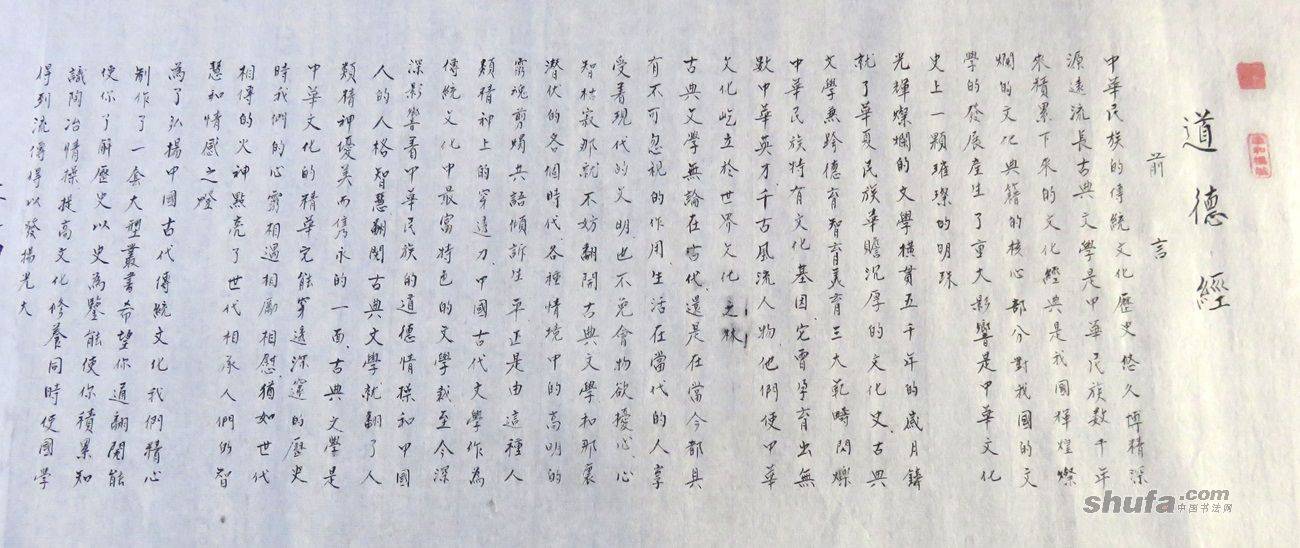 道德經
前言
中華民族的傳統文化歷史悠久博精深
源遠流長古典文學是中華民族数千年
來積累下來的文化經典是我國輝煌燦
爛的文化典籍的核心部分對我國的文
學的發展産生了重大影響是中華文化
史上一顆璀璨的明珠
光輝燦爛的文學横貫五千年的歲月鑄
就了華夏民族丰贍沉厚的文化史古典
文學兼跨德育智育美育三大範疇閃爍
中華民族特有文化基因它曾孕育出無
數中華英才千古風流人物他們使中華
文化屹立於世界文化之林
古典文學無論在古代還是在當今都具
有不可忽視的作用生活在當代的人享
受著現代的文明也不免會物欲擾心心
智枯寂那就不妨翻開古典文學和那裏
潜伏的各個時代各種情境中的高明的
靈魂剪燭共語傾訴生平正是由這種人
類精神上的穿透力中國古代文學作為
傳統文化中最富特色的文學載至今深
深影響着中華民族的道德情操和中國
人的人格智慧翻閱古典文學就翻了人
類精神優美而雋永的一面古典文學是
中華文化的精華它能穿透深邃的歷史
時我們的心靈相過相屬相慰猶如世代
相傳的火神點亮了世代相承人們的智
慧和情感之燈
為了弘揚中國古代傳統文化我們精心
制作了一套大型叢書希望你通翻閱能
使你了解歷史以史為鑒能使你積累知
識陶冶情操提高文化修養同時使國學
得到流傳得以發揚光大
shufa.com
中国书法网